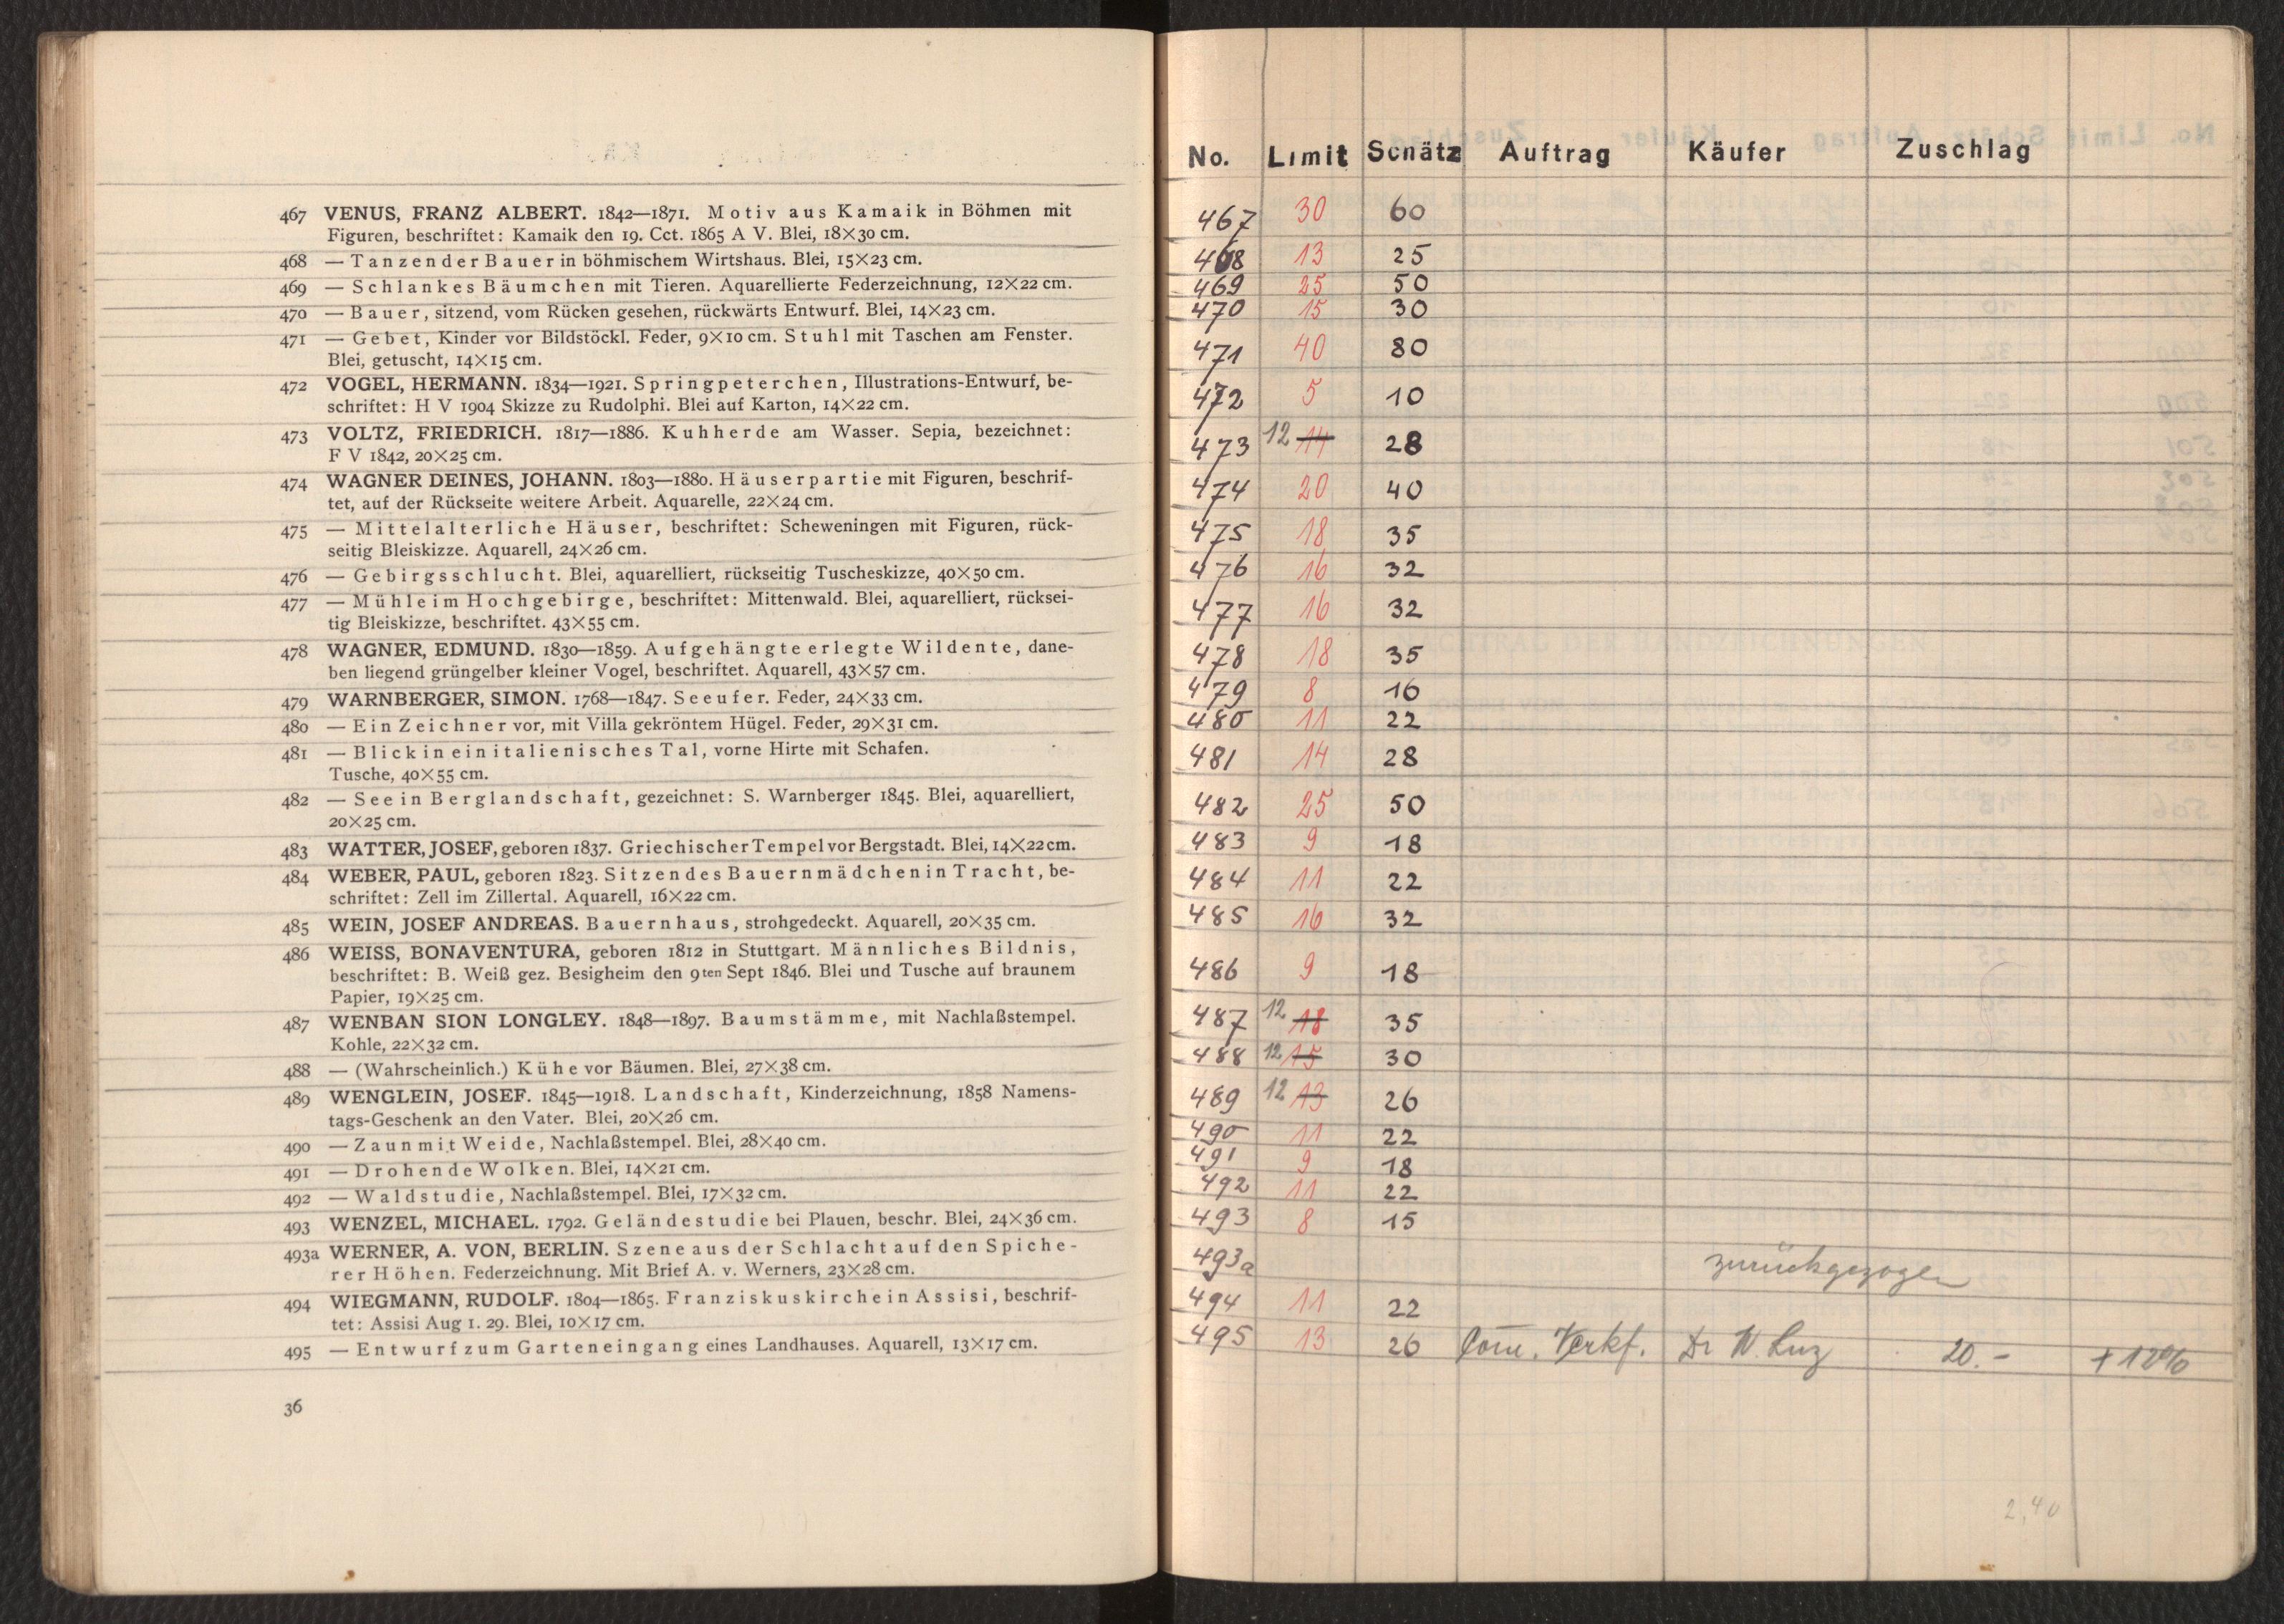 467 VENUS, FRANZ ALBERT. 1842—1871. Motiv aus Kamaik in Böhmen mit
Figuren, beschriftet: Kamaik den 19. Cct. 1865 A V. Blei, 18×30 cm.
468 — Tanzender Bauer in böhmischem Wirtshaus. Blei, 15×23 cm.
469 — Schlankes Bäumchen mit Tieren. Aquarellierte Federzeichnung, 12×22 cm.
470 — Bauer, sitzend, vom Rücken gesehen, rückwärts Entwurf. Blei, 14×23 cm.
471 — Gebet, Kinder vor Bildstöckl. Feder, 9×10 cm. Stuhl mit Taschen am Fenster.
Blei, getuscht, 14×15 cm.
472 VOGEL, HERMANN. 1834—1921. Springpeterchen, Illustrations-Entwurf, be-
schriftet: H V 1904 Skizze zu Rudolphi. Blei auf Karton, 14×22 cm.
473 VOLTZ, FRIEDRICH. 1817—1886. Kuhherde am Wasser. Sepia, bezeichnet:
F V 1842, 20×25 cm.
474 WAGNER DEINES, JOHANN. 1803—1880. Häuserpartie mit Figuren, beschrif-
tet, auf der Rückseite weitere Arbeit. Aquarelle, 22×24 cm.
475 — Mittelalterliche Häuser, beschriftet: Scheweningen mit Figuren, rück-
seitig Bleiskizze. Aquarell, 24×26 cm.
476 — Gebirgsschlucht. Blei, aquarelliert, rückseitig Tuscheskizze, 40×50 cm.
477 — Mühle im Hochgebirge, beschriftet: Mittenwald. Blei, aquarelliert, rücksei-
tig Bleiskizze, beschriftet. 43×55 cm.
478 WAGNER, EDMUND. 1830—1859. Aufgehängte erlegte Wildente, dane-
ben liegend grüngelber kleiner Vogel, beschriftet. Aquarell, 43×57 cm.
479 WARNBERGER, SIMON. 1768—1847. Seeufer. Feder, 24×33 cm.
480 — Ein Zeichner vor, mit Villa gekröntem Hügel. Feder, 29×31 cm.
481 — Blick in ein italienisches Tal, vorne Hirte mit Schafen.
Tusche, 40×55 cm.
482 — See in Berglandschaft, gezeichnet: S. Warnberger 1845. Blei, aquarelliert,
20×25 cm.
483 WATTER, JOSEF, geboren 1837. Griechischer Tempel vor Bergstadt. Blei, 14×22 cm.
484 WEBER, PAUL, geboren 1823. Sitzendes Bauernmädchen in Tracht, be-
schriftet: Zell im Zillertal. Aquarell, 16×22 cm.
485 WEIN, JOSEF ANDREAS. Bauernhaus, strohgedeckt. Aquarell, 20×35 cm.
486 WEISS, BONAVENTURA, geboren 1812 in Stuttgart. Männliches Bildnis,
beschriftet: B. Weiß gez. Besigheim den 9ten Sept 1846. Blei und Tusche auf braunem
Papier, 19×25 cm.
487 WENBAN SION LONGLEY. 1848—1897. Baumstämme, mit Nachlaßstempel.
Kohle, 22×32 cm.
488 — (Wahrscheinlich.) Kühe vor Bäumen. Blei, 27×38 cm.
489 WENGLEIN, JOSEF. 1845—1918. Landschaft, Kinderzeichnung, 1858 Namens-
tags-Geschenk an den Vater. Blei, 20×26 cm.
490 — Zaun mit Weide, Nachlaßstempel. Blei, 28×40 cm.
491 — Drohende Wolken. Blei, 14×21 cm.
492 — Waldstudie, Nachlaßstempel. Blei, 17×32 cm.
493 WENZEL, MICHAEL. 1792. Geländestudie bei Plauen, beschr. Blei, 24×36 cm.
493a WERNER, A. VON, BERLIN. Szene aus der Schlacht auf den Spiche-
rer Höhen. Federzeichnung. Mit Brief A. v. Werners, 23×28 cm.
494 WIEGMANN, RUDOLF. 1804—1865. Franziskuskirche in Assisi, beschrif-
tet: Assisi Aug 1. 29. Blei, 10×17 cm.
495 — Entwurf zum Garteneingang eines Landhauses. Aquarell, 13×17 cm.
36
No. Limit Schätz Auftrag Käufer Zuschlag
467 30 60
468 13 25
469 25 50
470 15 30
471 40 80
472 5 10
473 12 14 28
474 20 40
475 18 35
476 16 32
477 16 32
478 18 35
479 8 16
480 11 22
481 14 28
482 25 50
483 9 18
484 11 22
485 16 32
486 9 18
487 12 18 35
488 12 15 30
489 12 13 26
490 11 22
491 9 18
492 11 22
493 8 15
493a zurückgezogen
494 11 22
495 13 26 Com. Verkf. Dr W. Luz 20.- + 12%
2,40